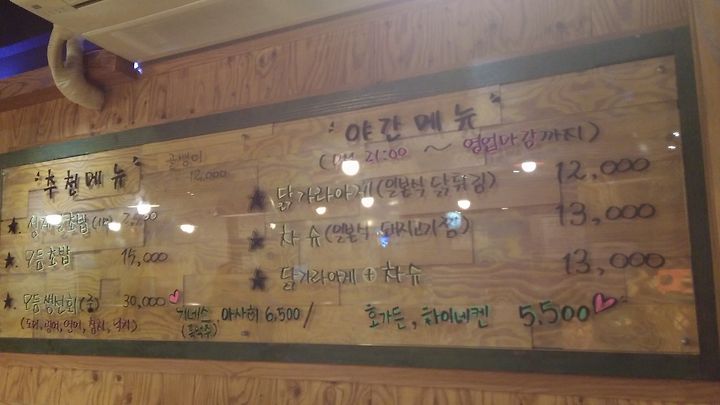 추천메뉴
골뱅이
12,000
모듬초밥 15,000
모듬생선회(소) 30,000
(도미, 광어, 연어, 참치, 낙지)
야간메뉴
(PM 21:00 ~ 영업마감까지)
닭가라아게(일본식 닭튀김) 12,000
차슈(일본식 돼지고기찜) 13,000
닭가라아게+차슈 13,000
기네스
(흑맥주)
아사히 6,500 / 호가든, 하이네켄 5,500